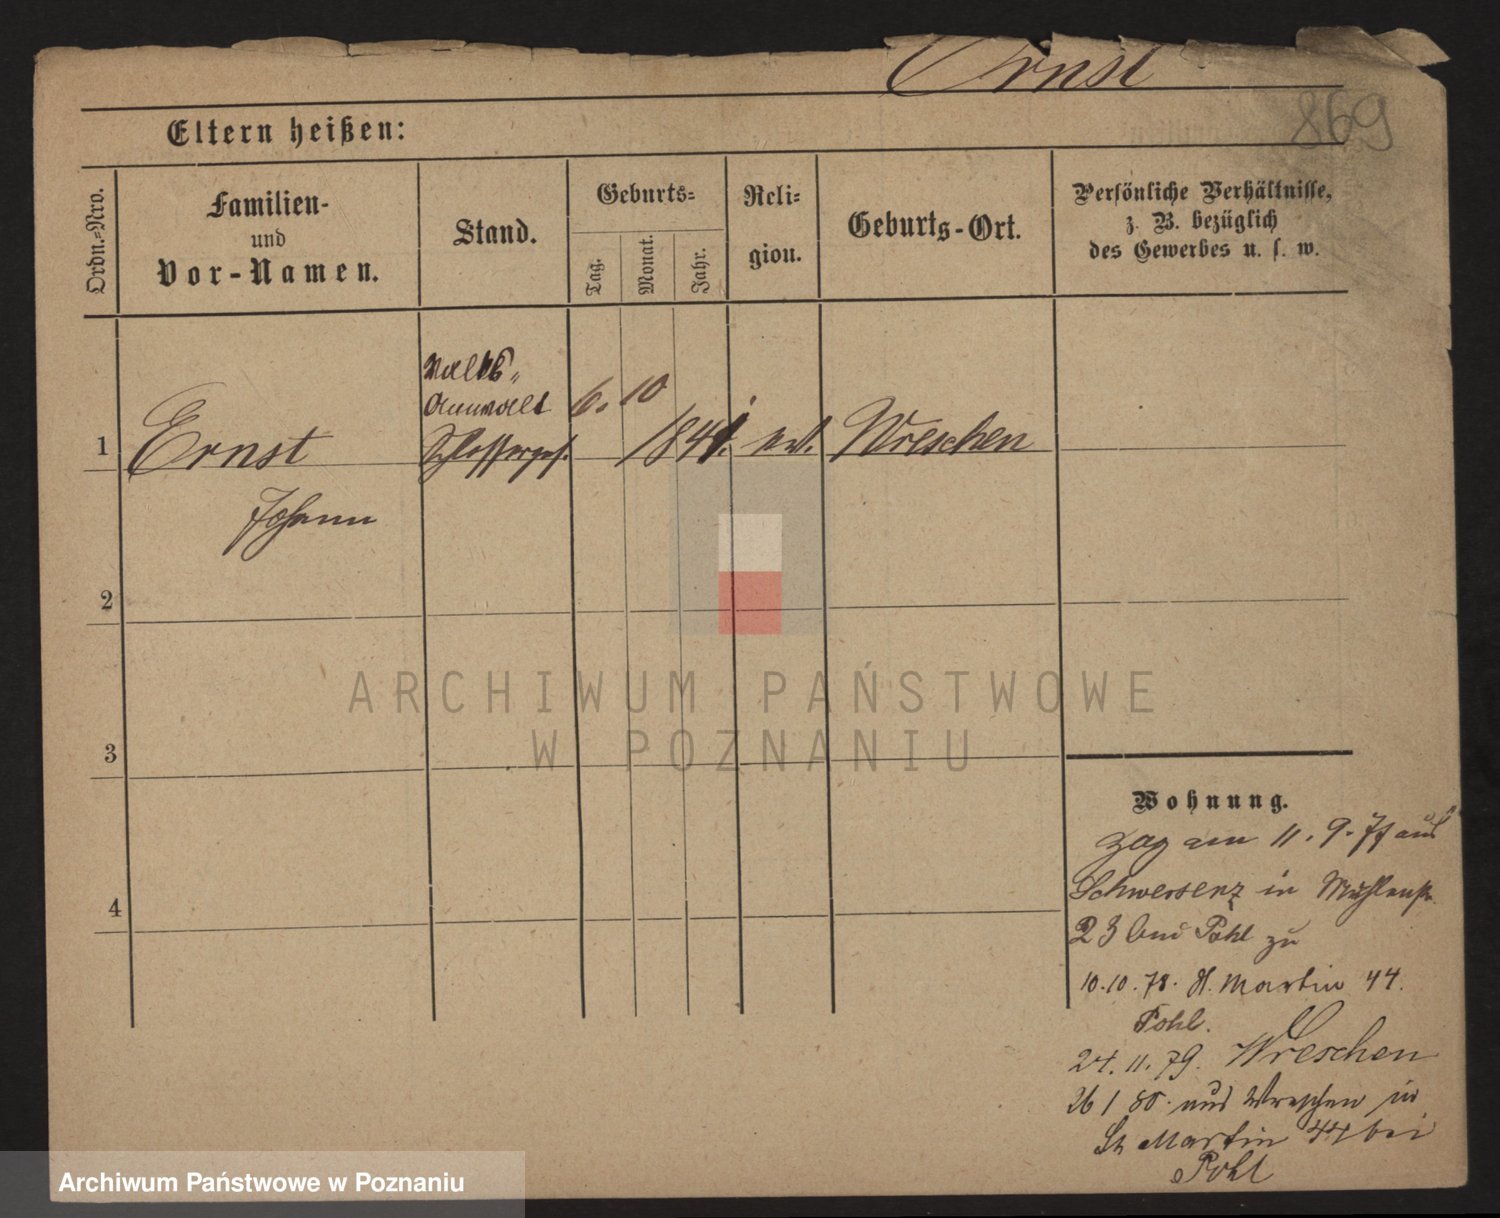 Ernst
869
Eltern heißen:
Ordn.-Nro.
Familien-
und
Vor-Namen.
Stand.
Geburts-
Tag.
Monat.
Jahr.
Reli-
gion.
Geburts-Ort.
Persönliche Verhältnisse,
z. B. bezüglich
des Gewerbes u. s. w.
1
Ernst
Johann
Anwalt
Schlosserges.
6. 10
1841.
Wreschen
2
3
4
Wohnung.
zog am 11. 9. 77 aus
Schwersenz in Mühlenstr.
23 bei Pohl zu
10.10.78. St. Martin 44.
Pohl.
24. 11. 79. Wreschen
26 1 80. aus Wreschen in
St Martin 44 bei
Pohl
ARCHIWUM PAŃSTWOWE
W POZNANIU
Archiwum Państwowe w Poznaniu